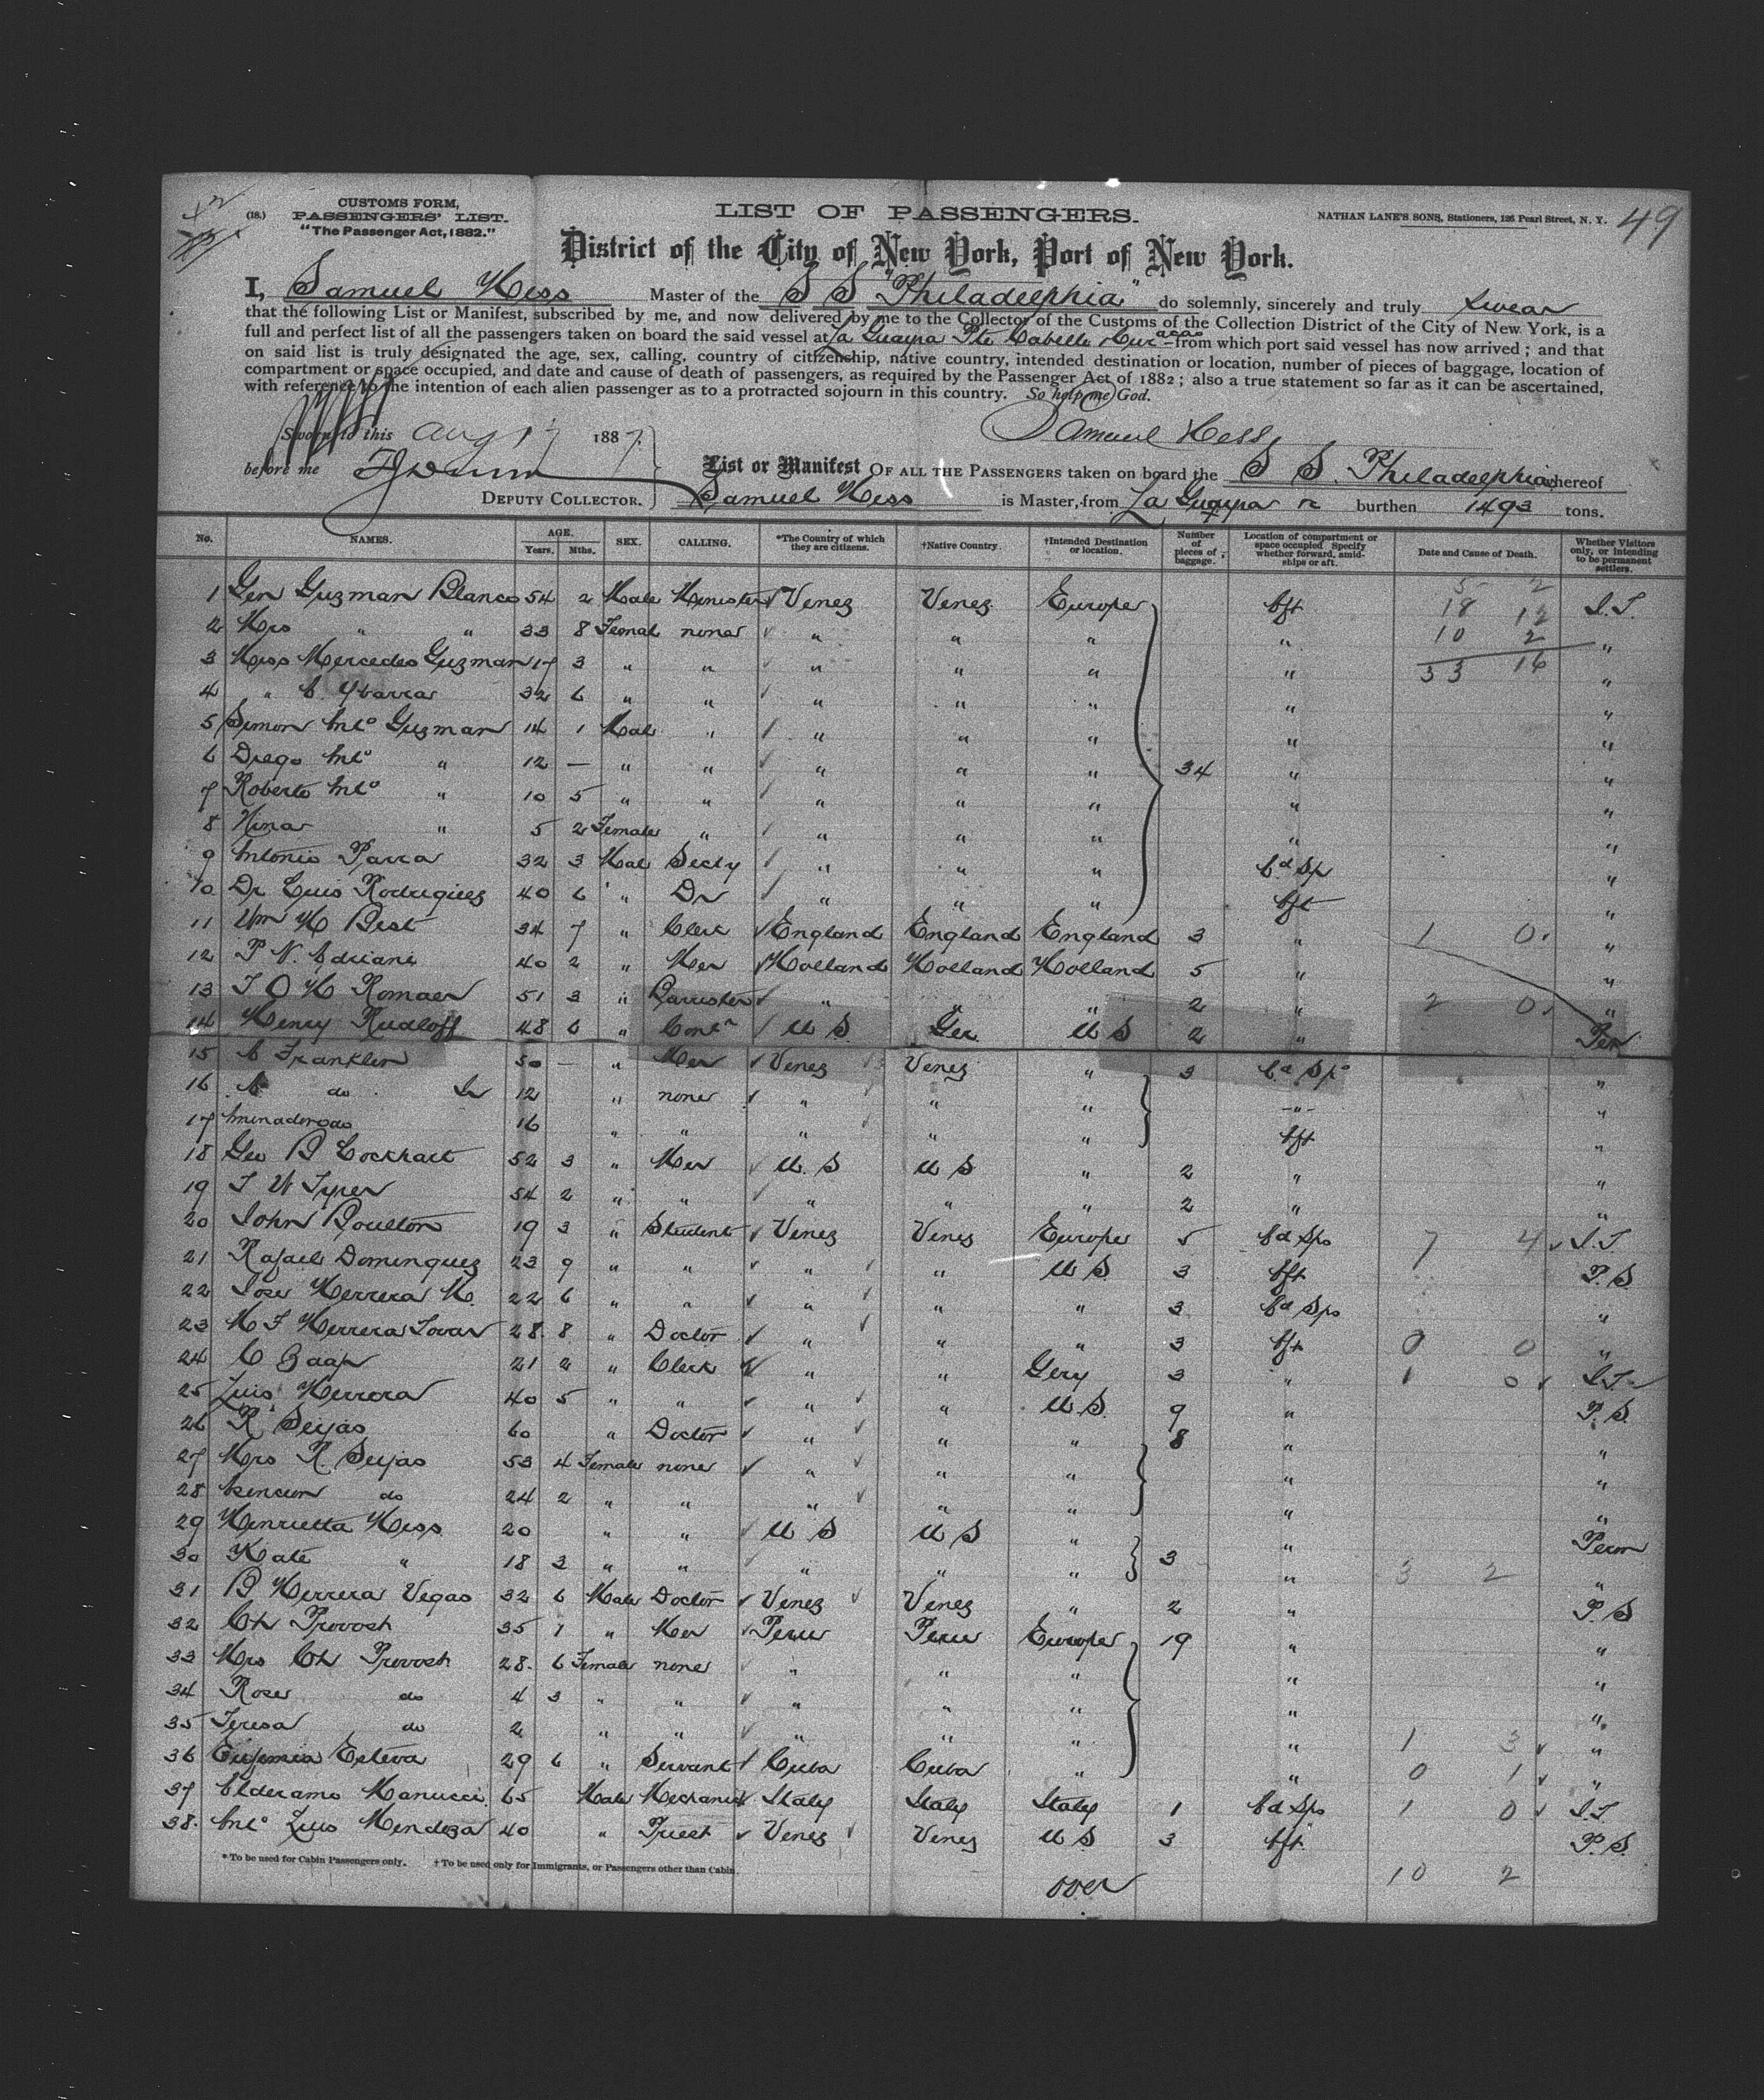 49
(18.) CUSTOMS FORM,
PASSENGERS' LIST.
"The Passenger Act, 1882."
LIST OF PASSENGERS.
NATHAN LANE'S SONS, Stationers, 126 Pearl Street, N. Y.
District of the City of New York, Port of New York.
I, Samuel Hess Master of the S S "Philadelphia" do solemnly, sincerely and truly swear
that the following List or Manifest, subscribed by me, and now delivered by me to the Collector of the Customs of the Collection District of the City of New York, is a
full and perfect list of all the passengers taken on board the said vessel at La Guayra Pto Cabello & Curacao from which port said vessel has now arrived; and that
on said list is truly designated the age, sex, calling, country of citizenship, native country, intended destination or location, number of pieces of baggage, location of
compartment or space occupied, and date and cause of death of passengers, as required by the Passenger Act of 1882; also a true statement so far as it can be ascertained,
with reference to the intention of each alien passenger as to a protracted sojourn in this country. So help me God.
Sworn to this Aug 17 1887. Samuel Hess
before me
DEPUTY COLLECTOR.
List or Manifest OF ALL THE PASSENGERS taken on board the S S. Philadelphia whereof
Samuel Hess is Master, from La Guayra burthen 1493 tons.
No. NAMES. AGE. Years. Mths. SEX. CALLING. *The Country of which they are citizens. †Native Country. †Intended Destination or location. Number of pieces of baggage. Location of compartment or space occupied. Specify whether forward, amidships or aft. Date and Cause of Death. Whether Visitors only, or intending to be permanent settlers.
5 2
18 12
10 2
33 16
1 Gen Guzman Blanco 54 2 Male Minister Venez Venez. Europe Aft I.T.
2 Mrs " " 33 8 Female none " " " " "
3 Miss Mercedes Guzman 17 3 " " " " " " "
4 " C. Ybarra 32 6 " " " " " " "
5 Simon Anto Guzman 14 1 Male " " " " " "
6 Diego Anto " 12 — " " " " " 34 " "
7 Roberto Anto " 10 5 " " " " " " "
8 Nina " 5 2 Female " " " " " "
9 Antonio Parra 32 3 Male Secty " " " Ad Sp "
10 Dr Luis Rodriguez 40 6 " Dr " " " Aft "
11 Wm H Best 34 7 " Clerk England England England 3 " 1 0. "
12 P N. Adriani 40 2 " Mer Holland Holland Holland 5 " "
13 J O H Romaer 51 3 " Barrister " " " 2 " 2 0. "
14 Henry Rudloff 48 6 " Cont U S Ger U S 2 " Per
15 A Franklin 50 — " Mer Venez Venez " 3 Ad Sp "
16 A do Jr 12 " none " " " -"- "
17 Aminador do 16 " " " " " Aft "
18 Geo B Lockhart 52 3 " Mer U. S U S " 2 " "
19 J W Tyrer 54 2 " " " " " 2 " "
20 John Boulton 19 3 " Student Venez Venez Europe 5 Ad Sps 7 4 I.T
21 Rafael Dominguez 23 9 " " " " U S 3 Aft P. S
22 Jose Herrera M. 22 6 " " " " " 3 Ad Sps "
23 M F Herrera Tovar 28. 8 " Doctor " " " 3 Aft 0 0 "
24 C Zaap 21 2 " Clerk " " Gery 3 " 1 0 I.T
25 Luis Herrera 40 5 " " " " U S 9 " P. S.
26 R Seijas 60 " Doctor " " " 8 " "
27 Mrs R. Seijas 53 4 Female none " " " " "
28 Asencion do 24 2 " " " " " " "
29 Henrietta Hess 20 " " U S U S " " Perm
30 Kate " 18 3 " " " " " 3 " 3 2 "
31 B Herrera Vegas 32 6 Male Doctor Venez Venez " 2 " P. S
32 Ch Provost 35 1 " Mer Peru Peru Europe 19 " "
33 Mrs Ch Provost 28. 6 Female none " " " " "
34 Rose do 4 3 " " " " " " "
35 Teresa do 2 " " " " " " 1 3 "
36 Eufemia Esteva 29 6 " Servant Cuba Cuba " " 0 1 "
37 Elderamo Manucci 65 Male Mechanic Italy Italy Italy 1 Ad Sps 1 0 I.T
38. Anto Luis Mendoza 40 " Priest Venez Venez U S 3 Aft. P. S.
* To be used for Cabin Passengers only. † To be used only for Immigrants, or Passengers other than Cabin.
over
10 2